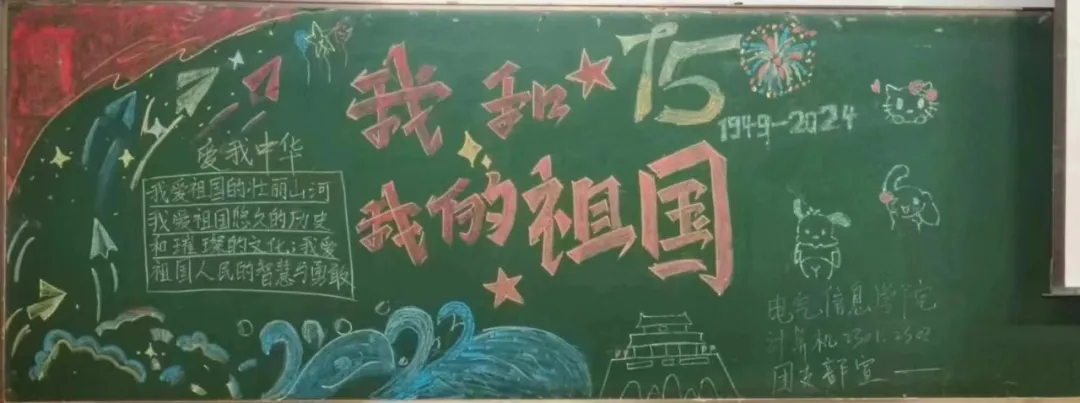 我和
75
1949-2024
我的祖国
爱我中华
我爱祖国的壮丽山河
我爱祖国悠久的历史
和璀璨的文化;我爱
祖国人民的智慧与勇敢
电气信息学院
计算机2301.2302
团支部宣——